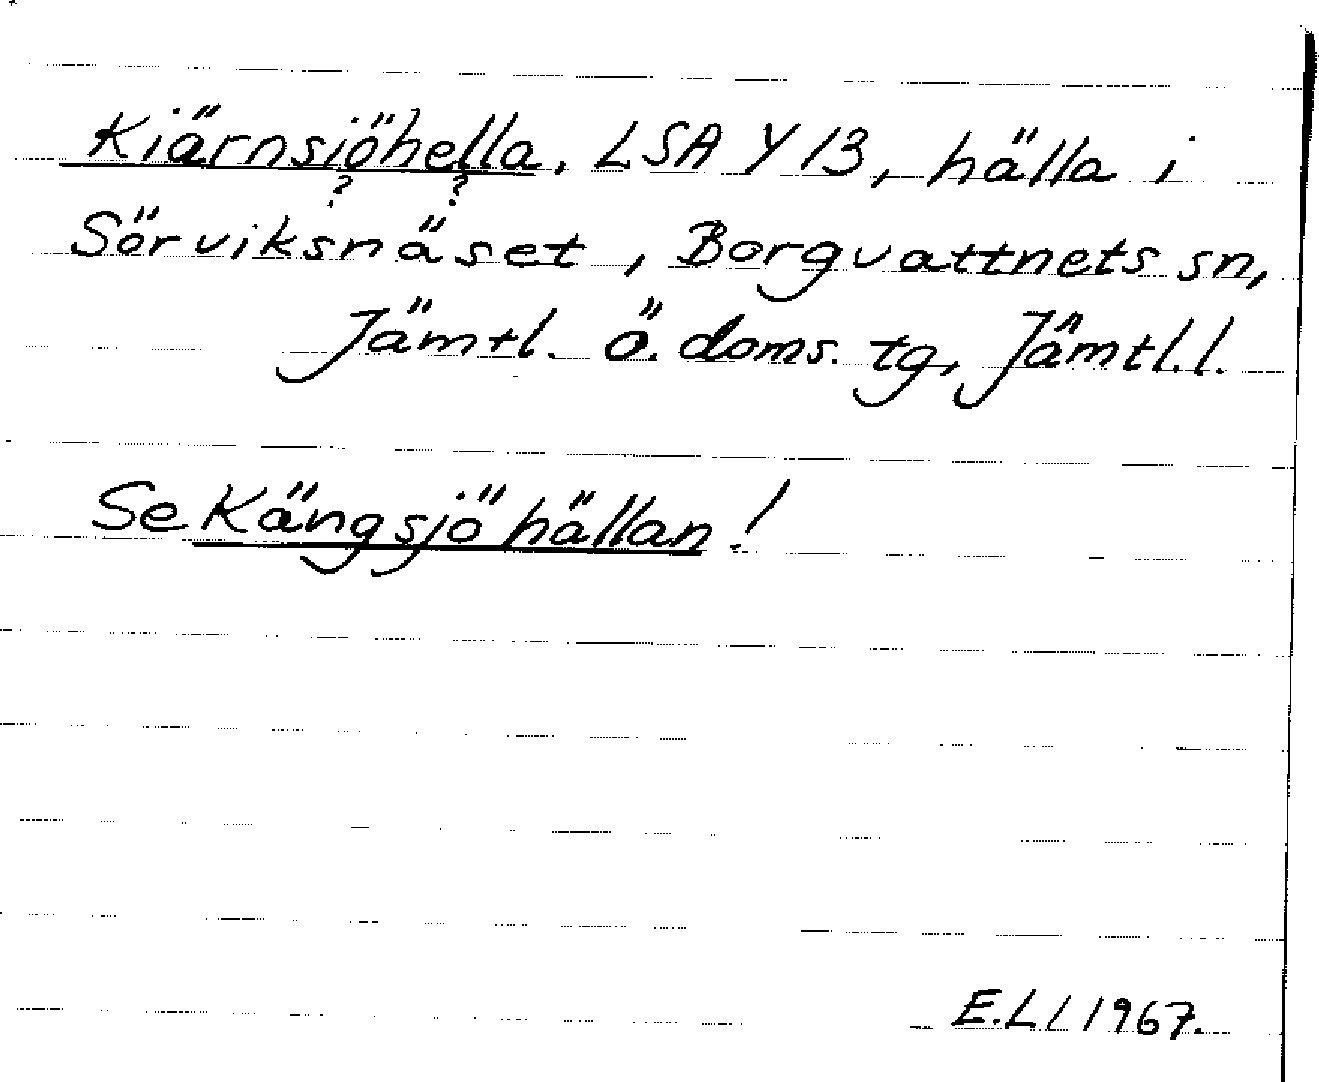 Kiärnsjöhella, LSA Y 13, hälla i
? ?
Sörviksnäset, Borgvattnets sn,
Jämtl. ö. doms. tg, Jämtl. l.
Se Kängsjöhällan!
E.L / 1967.